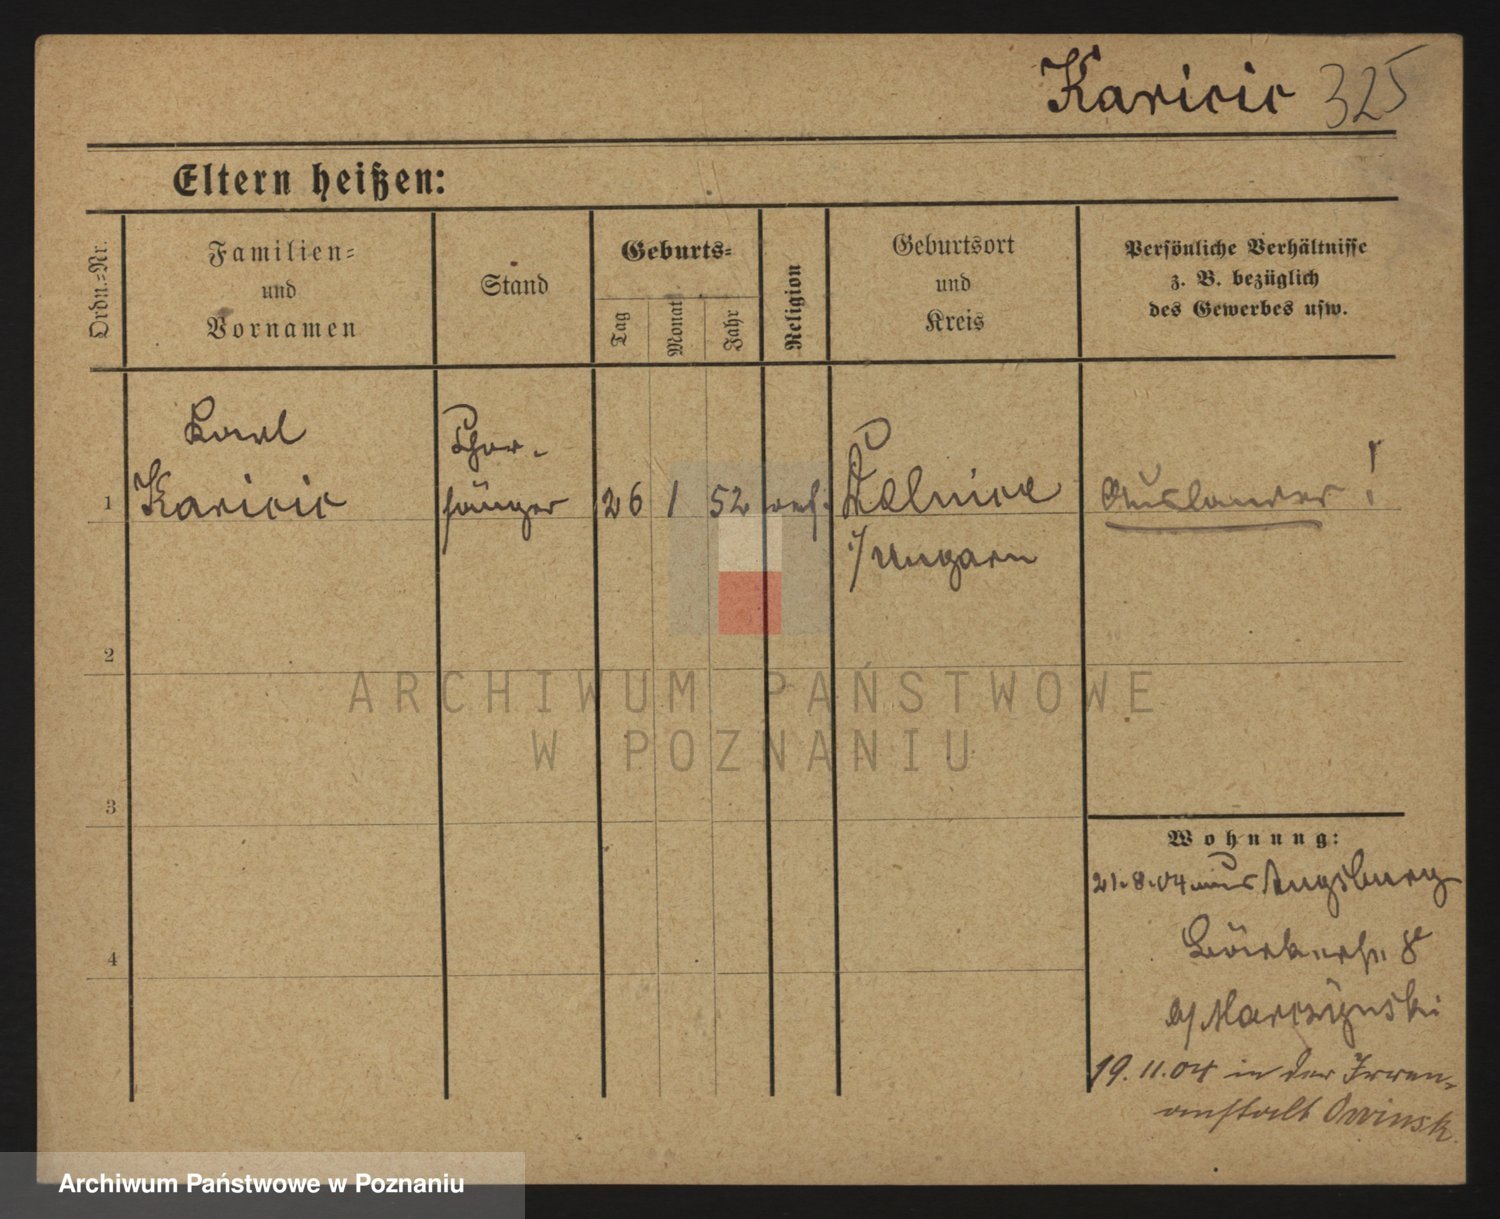 Karicic 325
Eltern heißen:
Ordn.-Nr.
Familien-
und
Vornamen
Stand
Geburts-
Tag
Monat
Jahr
Religion
Geburtsort
und
Kreis
Persönliche Verhältnisse
z. B. bezüglich
des Gewerbes usw.
1
Karl
Karicic
Chor-
sänger
26 1 52
Ungarn
Ausländer !
2
3
4
ARCHIWUM PAŃSTWOWE
W POZNANIU
Wohnung:
21.8.04 aus Augsburg
Bäckerstr. 8
b/ Marczynski
19.11.04 in der Irren-
anstalt Owinsk.
Archiwum Państwowe w Poznaniu